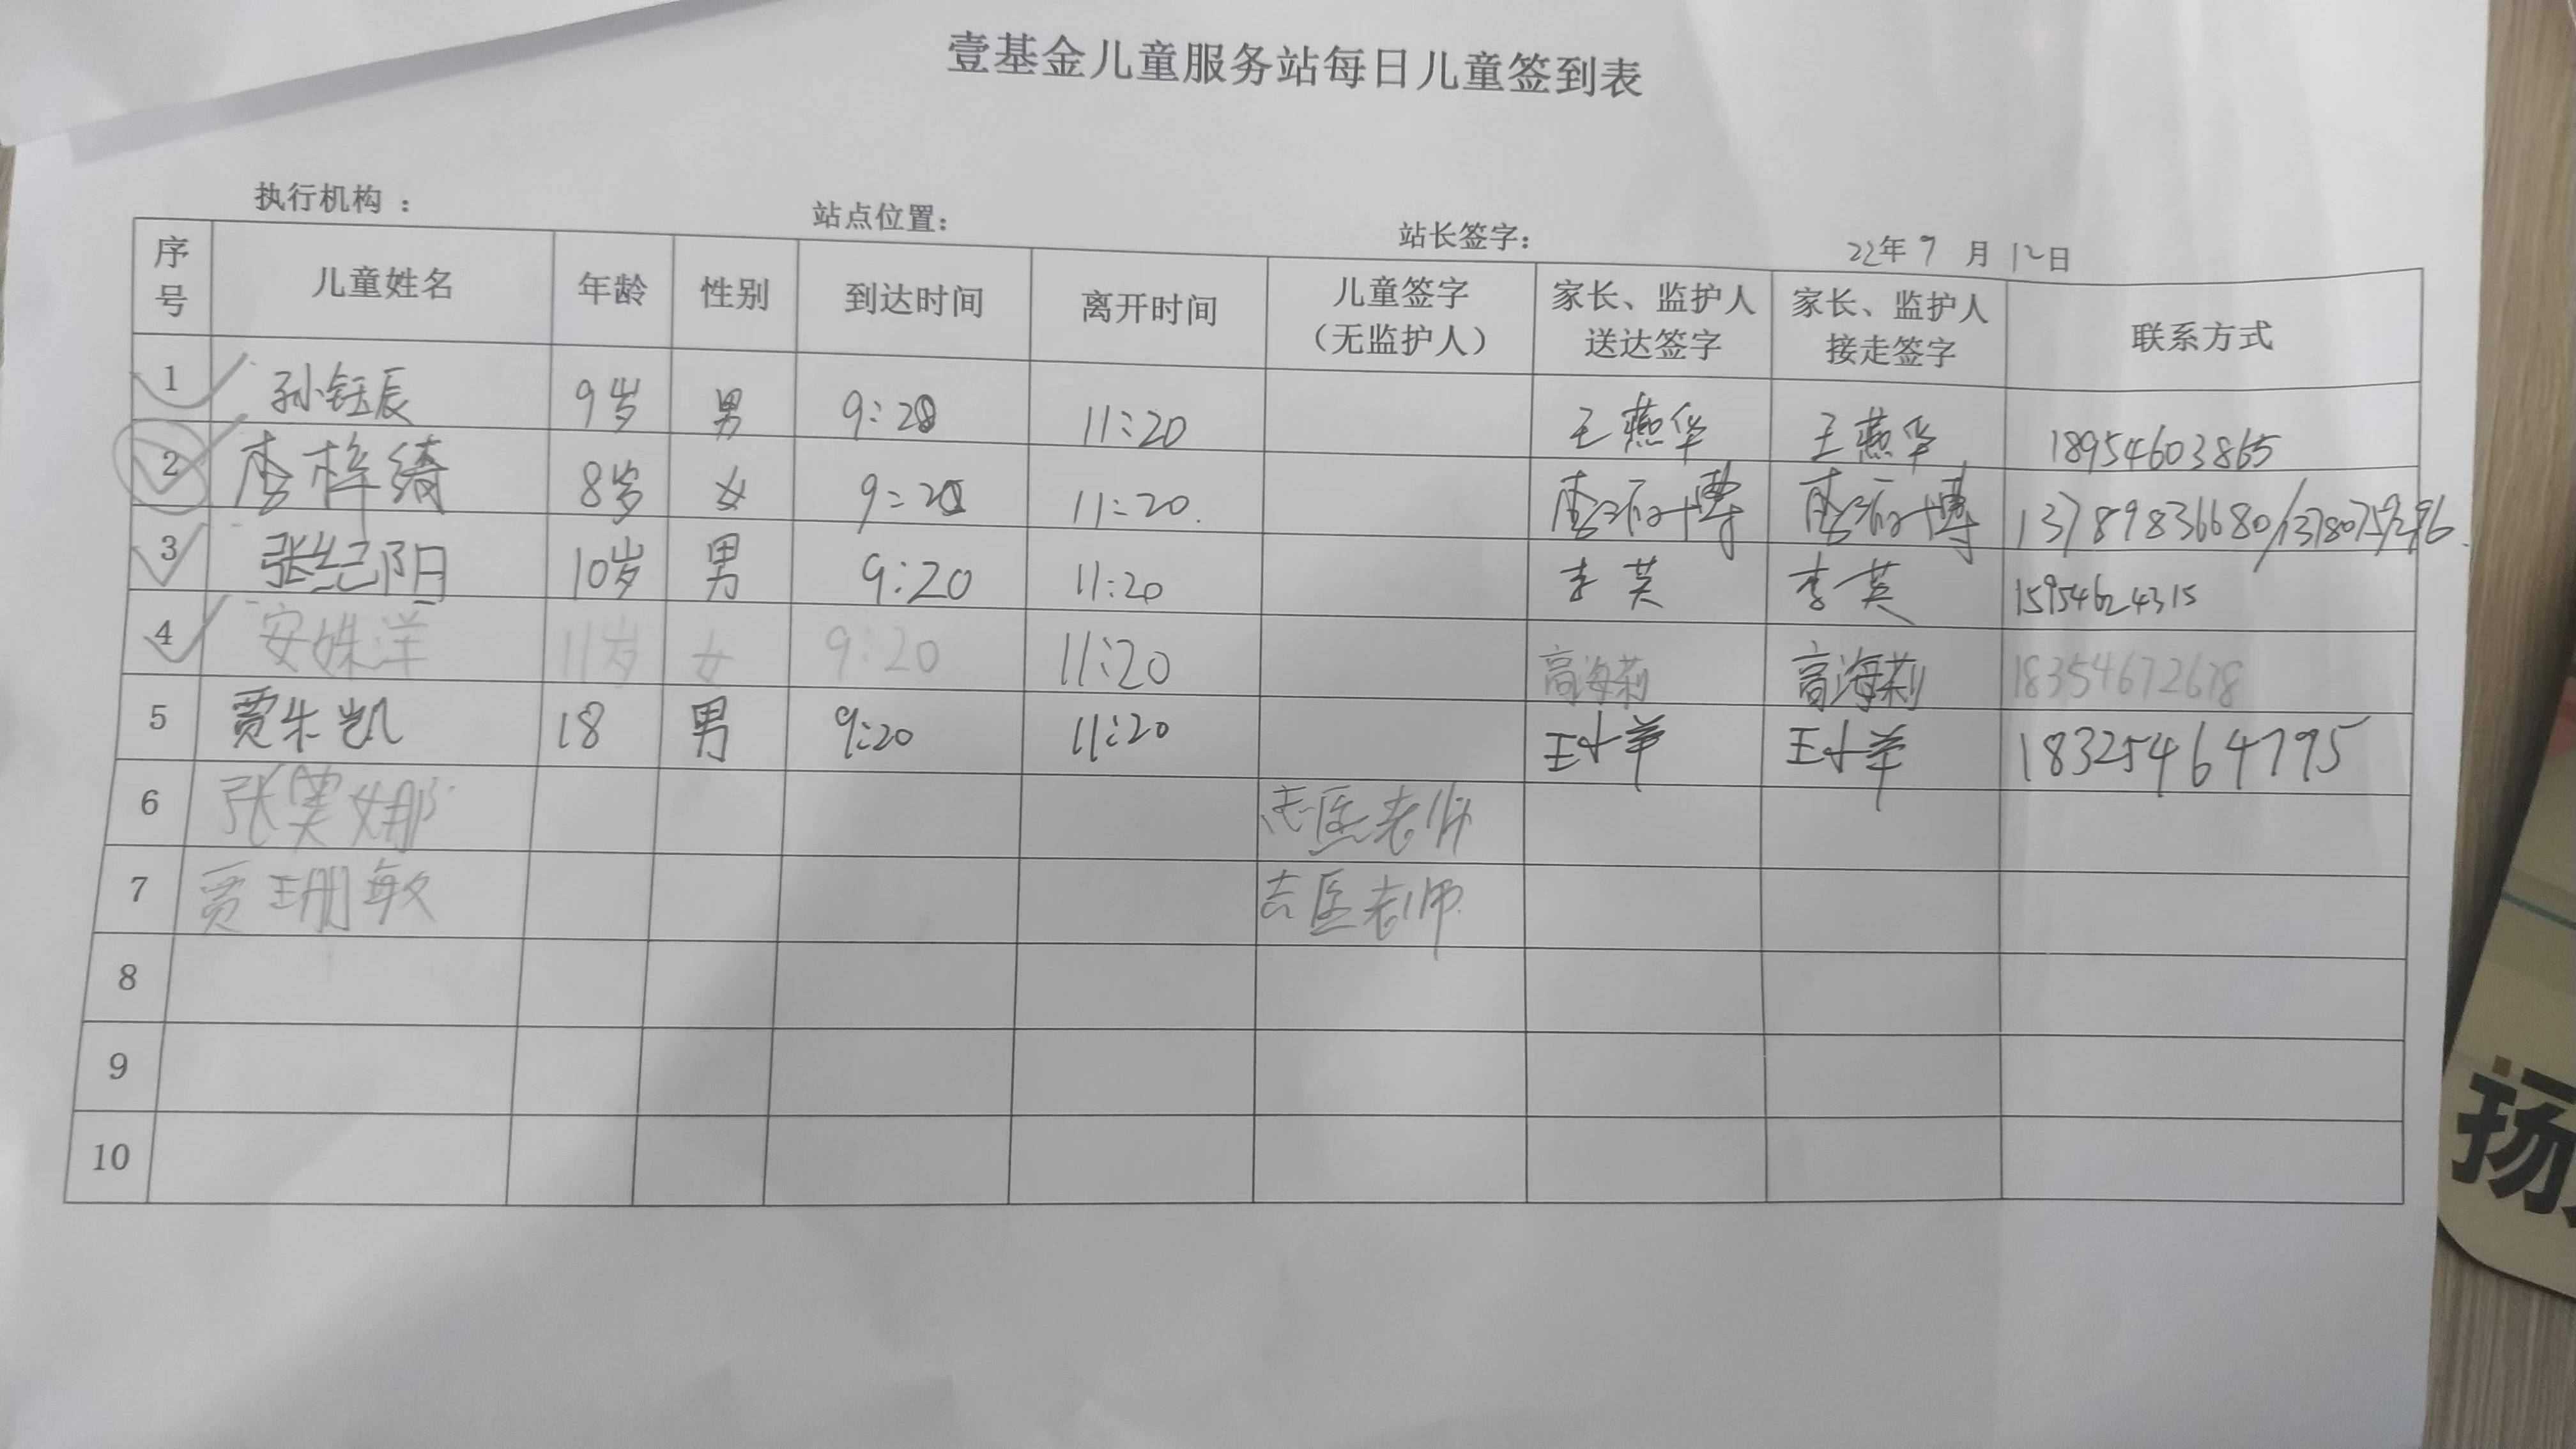 壹基金儿童服务站每日儿童签到表
执行机构： 站点位置： 站长签字： 22年9月12日
序号 儿童姓名 年龄 性别 到达时间 离开时间 儿童签字（无监护人） 家长、监护人送达签字 家长、监护人接走签字 联系方式
1 孙钰辰 9岁 男 9:20 11:20 王燕华 王燕华 18954603865
2 李梓绮 8岁 女 9:20 11:20. 13789836680/
3 张纪阳 10岁 男 9:20 11:20 李英 李英 15954624315
4 安姝洋 11岁 女 9:20 11:20 高海莉 高海莉 18354672678
5 贾朱凯 18 男 9:20 11:20 王小苹 王小苹 18325464795
6 张笑娜 老师
7 贾珊敏 老师
8
9
10
扬